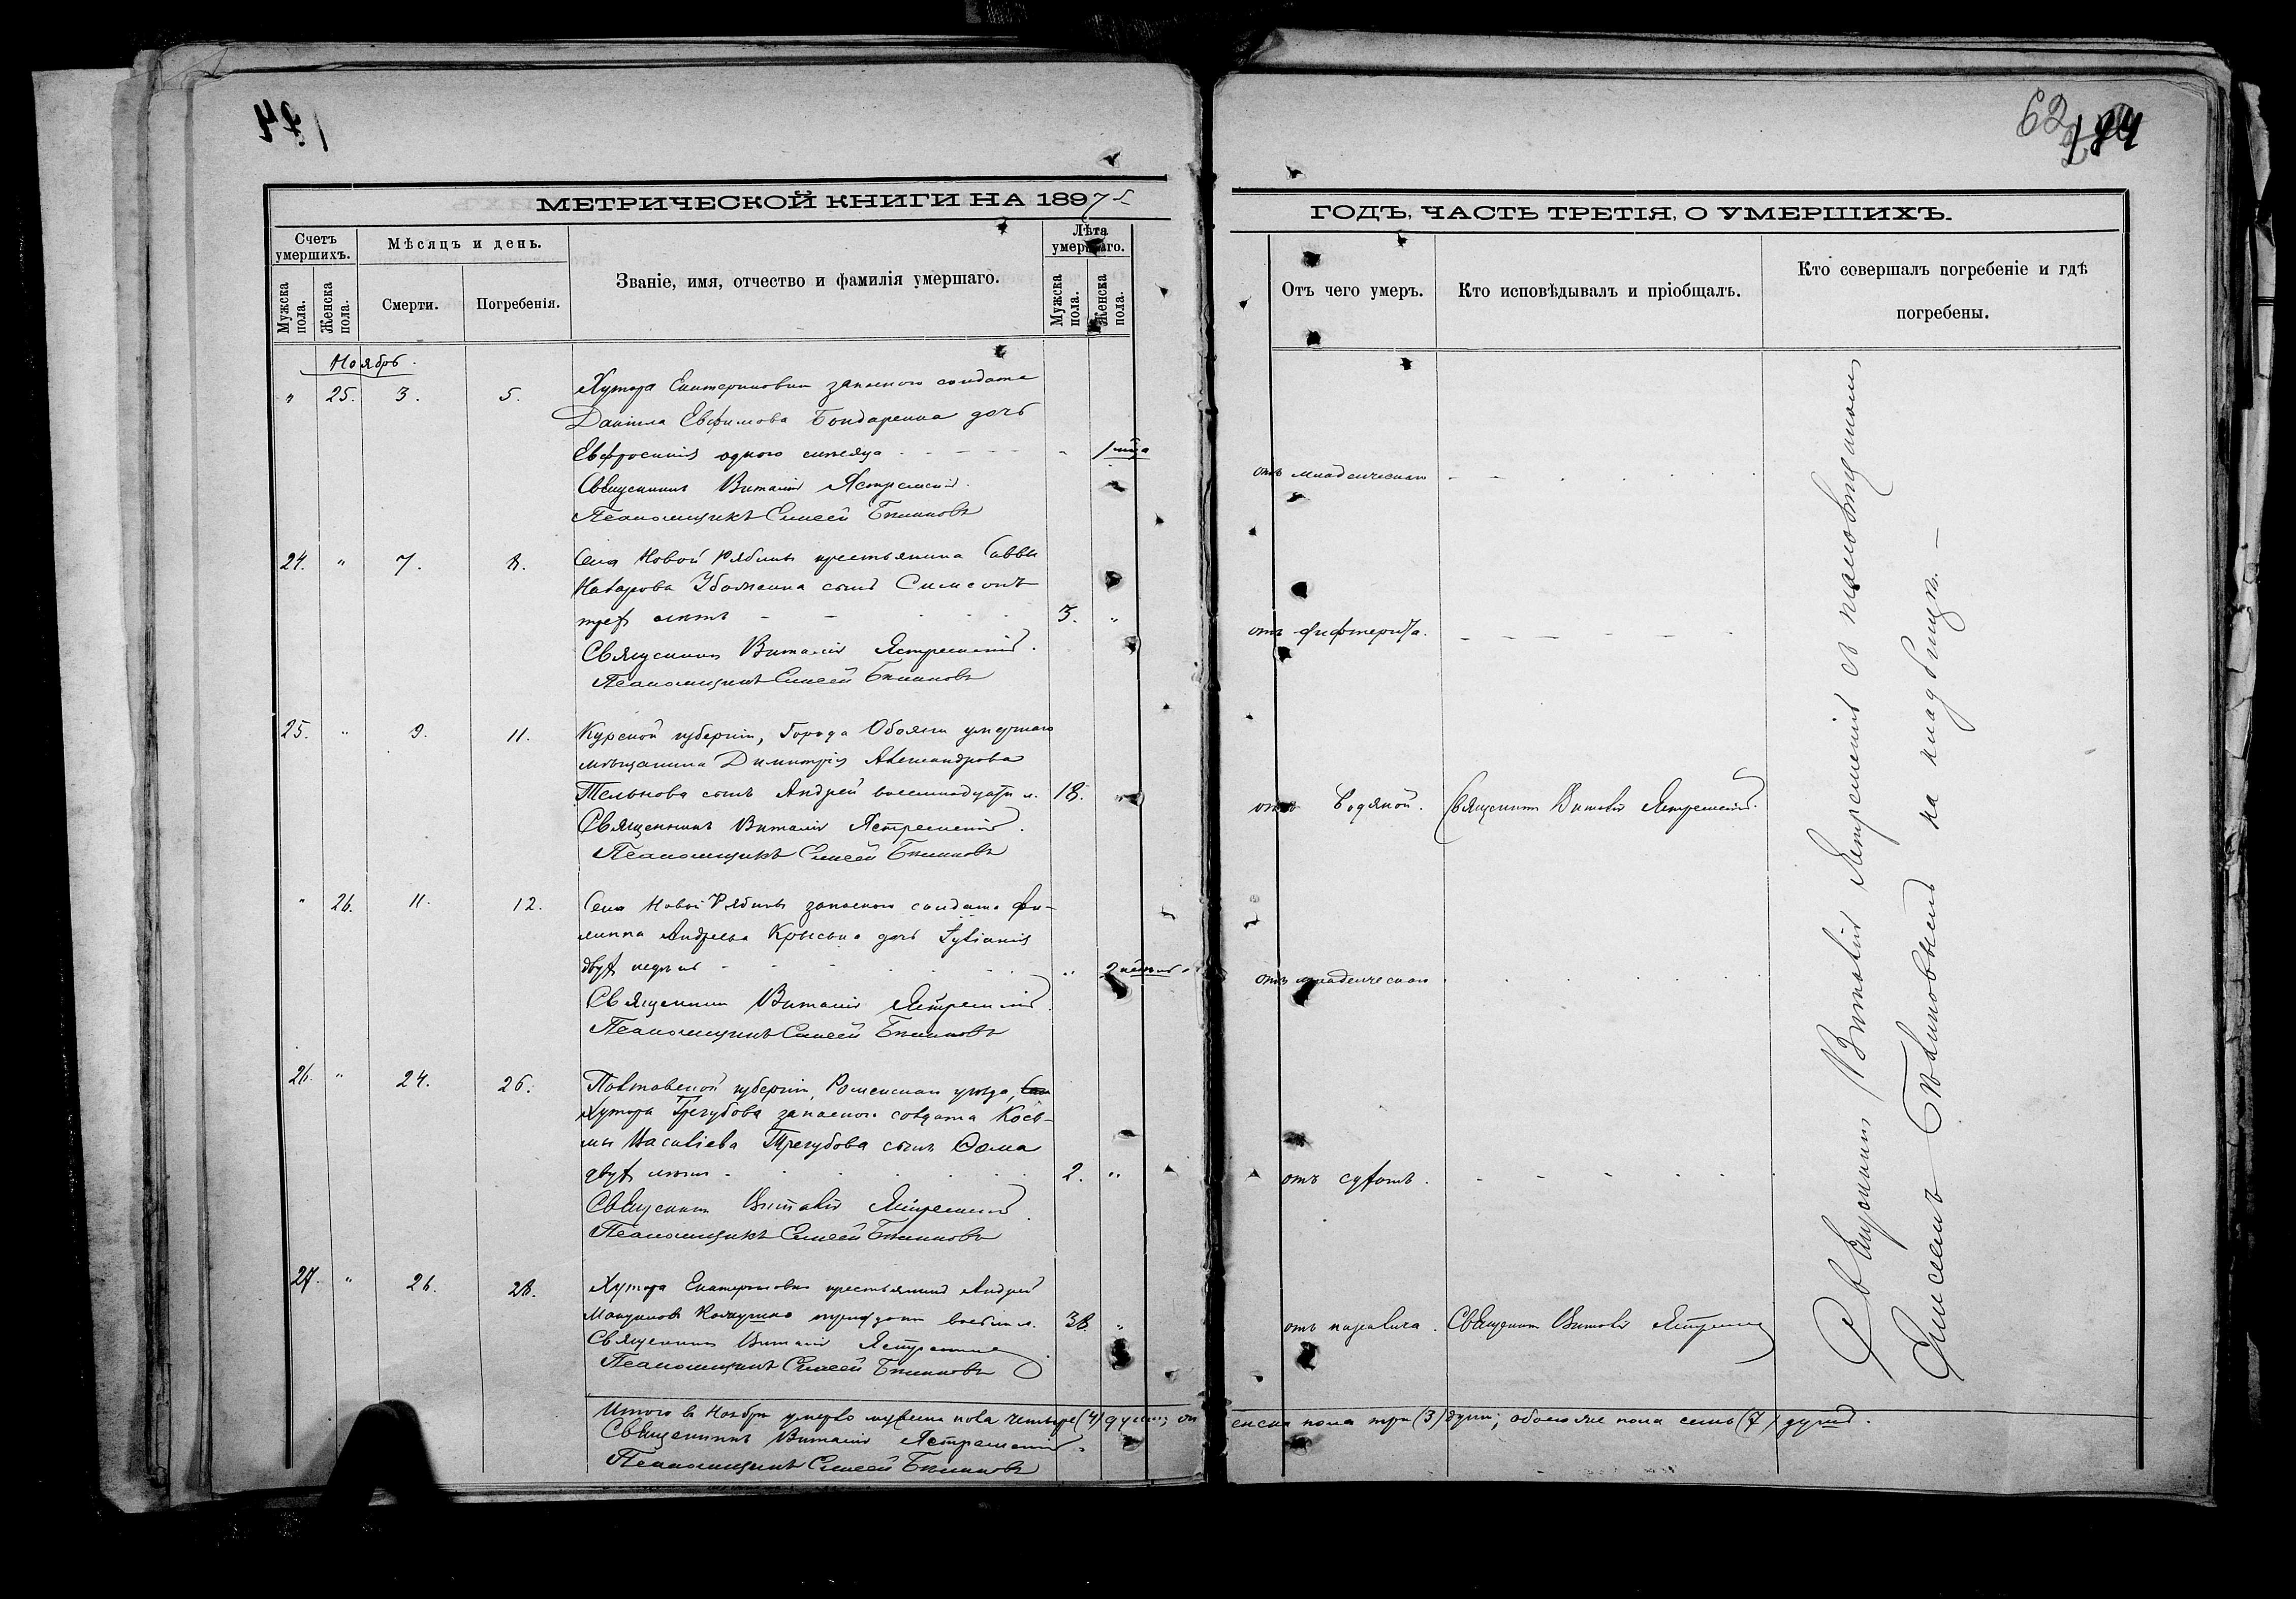 174
62
184
МЕТРИЧЕСКОЙ КНИГИ НА 1897
ГОДЪ, ЧАСТЬ ТРЕТІЯ, О УМЕРШИХЪ.
Счетъ умершихъ.
Мужска пола.
Женска пола.
Мѣсяцъ и день.
Смерти.
Погребенія.
Званіе, имя, отчество и фамилія умершаго.
Лѣта умершаго.
Мужска пола.
Женска пола.
Отъ чего умеръ.
Кто исповѣдывалъ и пріобщалъ.
Кто совершалъ погребеніе и гдѣ
погребены.
Ноябрь.
" 25. 3. 5. Хутора Екатериновки запаснаго солдата
Даніила Евфимова Бондаренка дочь
Евфросинія одного мѣсяца " 1 мѣс. отъ младенческаго
Священникъ Виталій Ястремскій.
Псаломщикъ Елисей Бѣлиновъ
24. " 7. 8. Села Новой Рябины крестьянина Саввы
Назарова сынъ Симеонъ
трех лѣтъ 3. " отъ дифтерита.
Священникъ Виталій Ястремскій.
Псаломщикъ Елисей Бѣлиновъ
25. " 9. 11. Курской губерніи, Города Обояни умершаго
мѣщанина Димитрія Александрова
Тельнова сынъ Андрей восемнадцати л. 18. " отъ водяной. Священникъ Виталій Ястремскій.
Священникъ Виталій Ястремскій.
Псаломщикъ Елисей Бѣлиновъ
" 26. 11. 12. Села Новой Рябины запаснаго солдата Фи-
липпа Андреева дочь Іуліанія
двух недѣль " 2 недѣль отъ младенческаго
Священникъ Виталій Ястремскій.
Псаломщикъ Елисей Бѣлиновъ
26. " 24. 26. Полтавской губерніи, Роменскаго уѣзда,
Хутора Трегубова запаснаго солдата Кось-
мы Василіева Трегубова сынъ Ѳома
двух лѣтъ 2. " отъ сухотъ.
Священникъ Виталій Ястремскій
Псаломщикъ Елисей Бѣлиновъ
27. " 26. 28. Хутора Екатериновки крестьянинъ Андрей
тридцати восьми л. 38. " отъ паралича. Священникъ Виталій Ястремскій
Священникъ Виталій Ястремскій
Псаломщикъ Елисей Бѣлиновъ
Итого въ Ноябрѣ умерло мужеска пола четыре (4) души; женска пола три (3) души; обоего же пола семь (7) душъ.
Священникъ Виталій Ястремскій.
Псаломщикъ Елисей Бѣлиновъ
Священникъ Виталій Ястремскій съ псаломщикомъ
Елисеемъ Бѣлиновымъ на кладбищѣ. —